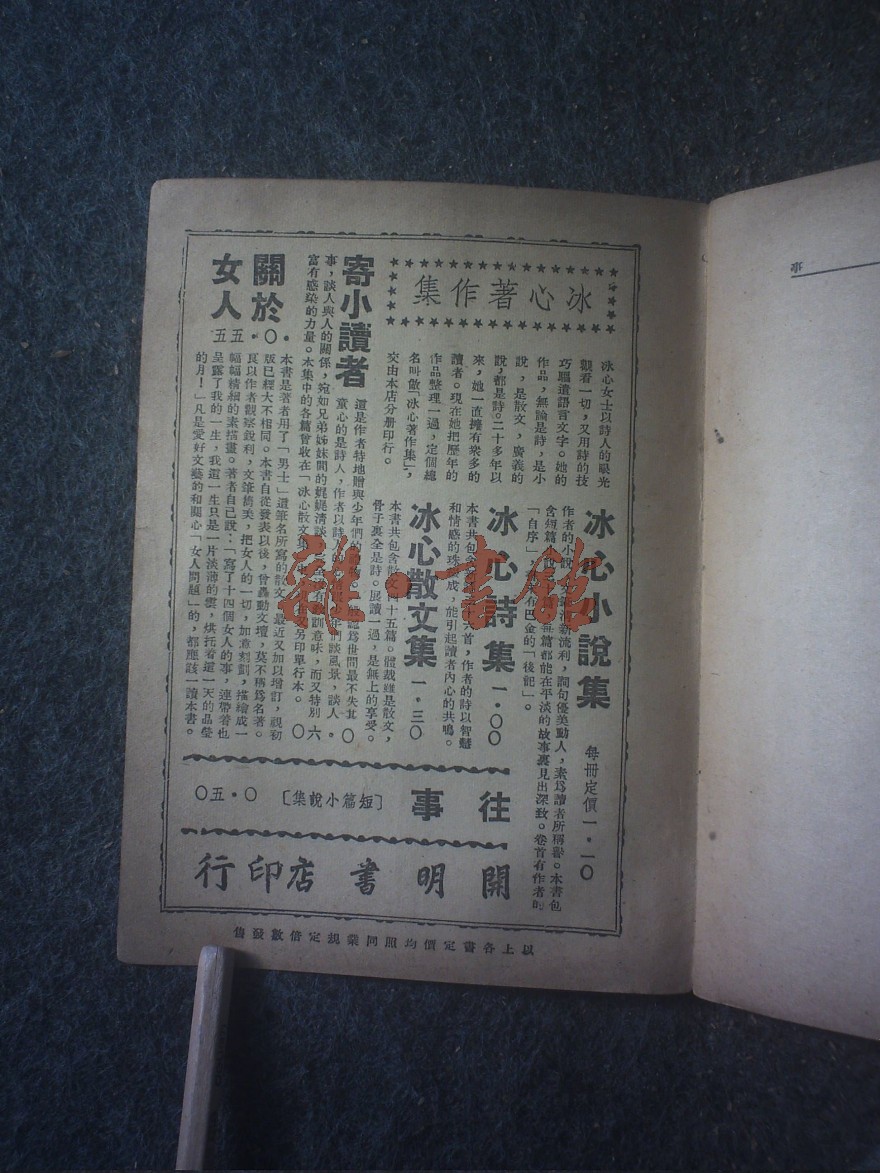 冰心著作集
冰心女士以詩人的眼光
觀看一切,又用詩的技
巧驅遣語言文字。她的
作品,無論是詩,是小
說,是散文,廣義的
說,都是詩。二十多年以
來,她一直擁有衆多的
讀者。現在她把歷年的
作品整理一過,定個總
名叫做「冰心著作集」,
交由本店分册印行。
冰心小說集 每冊定價一・一〇
作者的小說,文筆清新流利,詞句優美動人,素爲讀者所稱譽。本書包
含短篇小說 篇都能在平淡的故事裏見出深致。卷首有作者的
「自序」, 有巴金的「後記」。
冰心詩集 一・〇〇
本書共包 首,作者的詩以智慧
和情感的珠 成,能引起讀者內心的共鳴。
冰心散文集 一・三〇
本書共包含散文 十五篇。體裁雖是散文,
骨子裏全是詩。展讀一過,是無上的享受。
寄小讀者 〇・六〇
這是作者特地贈與少年們的 爲世間最不失其
童心的是詩人,作者以詩人的 年們談風景,談人
事,談人與人的關係,宛如兄弟姊妹間的娓娓清談, 訓意味,而又特別
富有感染的力量。本集中的各篇曾收在「冰心散文集 又另印單行本。
關於女人 〇・五五
本書是著者用了「男士」這筆名所寫的散文 最近又加以增訂,視初
版已經大不相同。本書自從發表以後,曾轟動文壇,莫不稱爲名著。
良以作者觀察銳利,文筆簡美,把女人的一切,加意刻劃,描繪成一
幅幅精細的素描畫。著者自己說:「寫了十四個女人的事,連帶着也
呈露了我的一生,我這一生只是一片淡薄的雲,烘托着這一天的晶瑩
的月!」凡是愛好文藝的和關心「女人問題」的,都應該一讀本書。
往事 [短篇小說集] 〇・五〇
開明書店印行
以上各書定價均照同業規定倍數發售
事
雜・書館